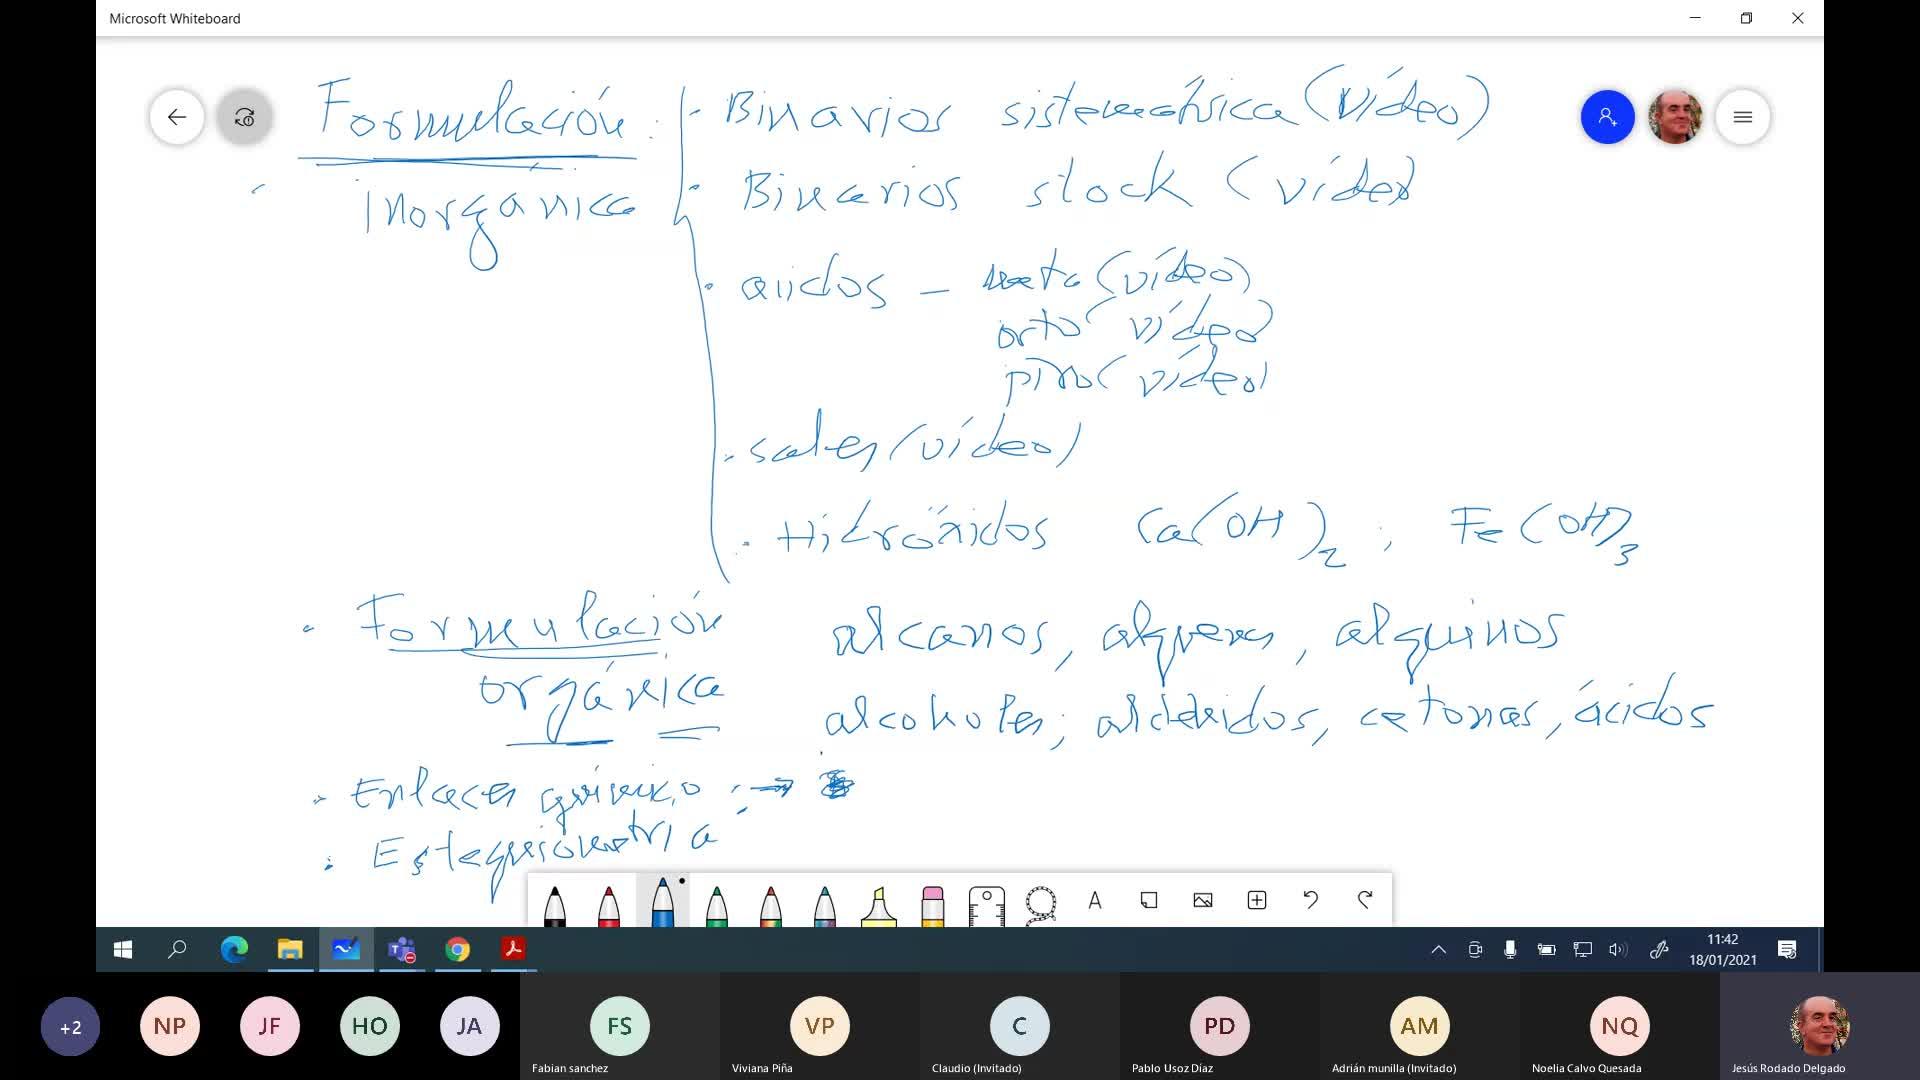 Microsoft Whiteboard
Formulación : · Binarios sistemática (vídeo)
inorgánica · Binarios stock (vídeo)
· ácidos – meta (vídeo)
orto (vídeo)
piro (vídeo)
· sales (vídeo)
· Hidróxidos Ca(OH)2 ; Fe(OH)3
· Formulación alcanos, alquenos, alquinos
orgánica alcoholes; aldehidos, cetonas, ácidos
· Enlaces químico : →
· Estequiometria
A
11:42
18/01/2021
+2 NP JF HO JA FS VP C PD AM NQ
Fabian sanchez Viviana Piña Claudio (Invitado) Pablo Usoz Díaz Adrián munilla (Invitado) Noelia Calvo Quesada Jesús Rodado Delgado